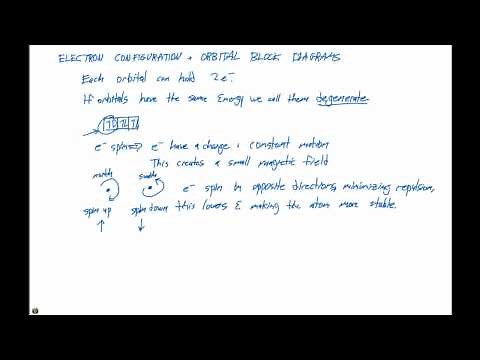 ELECTRON CONFIGURATION + ORBITAL BLOCK DIAGRAMS
Each orbital can hold 2e⁻.
If orbitals have the same Energy we call them degenerate
e⁻ spin ⇒ e⁻ have a charge & constant motion
This creates a small magnetic field
north south e⁻ spin in opposite directions, minimizing repulsion,
spin up spin down this lowers E making the atom more stable.
↑ ↓